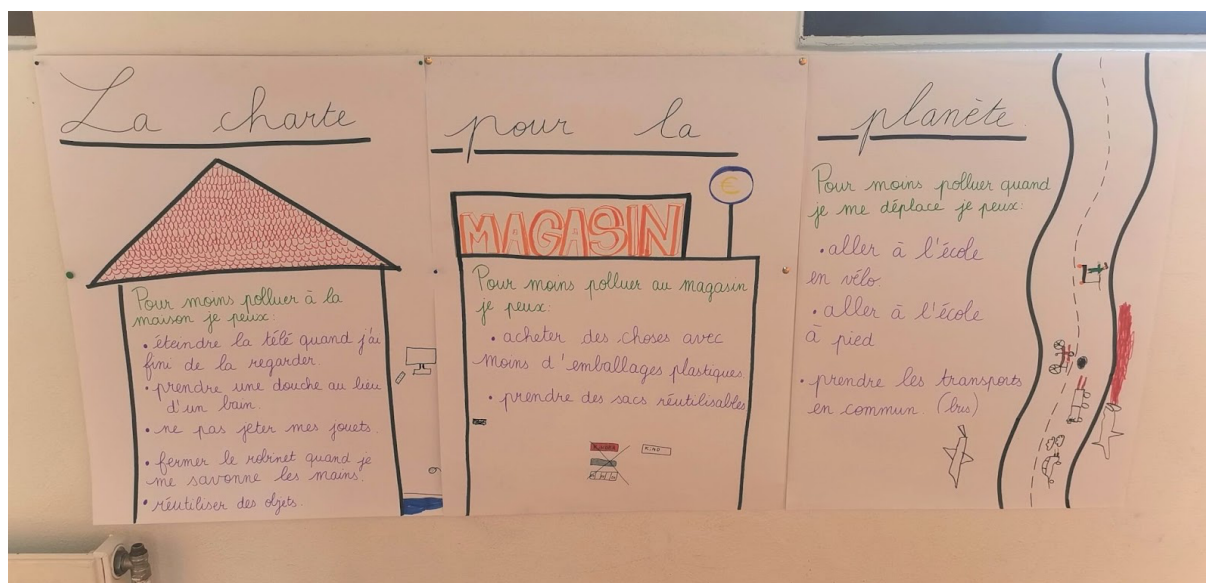 La charte
Pour moins polluer à la
maison je peux:
• éteindre la télé quand j'ai
fini de la regarder.
• prendre une douche au lieu
d'un bain.
• ne pas jeter mes jouets.
• fermer le robinet quand je
me savonne les mains.
• réutiliser des objets.
pour la
€
MAGASIN
Pour moins polluer au magasin
je peux:
• acheter des choses avec
moins d'emballages plastiques
• prendre des sacs réutilisables
planète
Pour moins polluer quand
je me déplace je peux:
• aller à l'école
en vélo.
• aller à l'école
à pied
• prendre les transports
en commun. (bus)